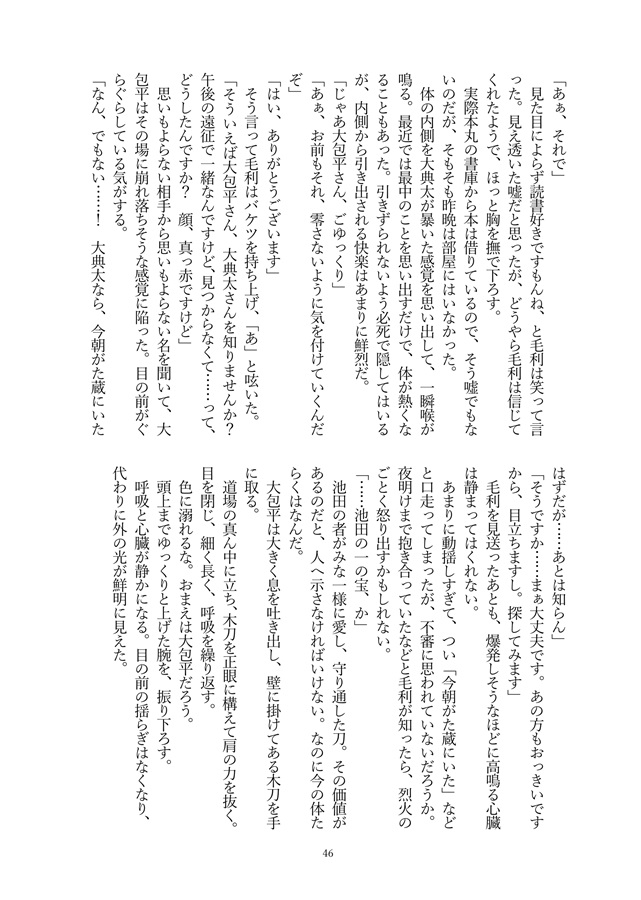 「あぁ、それで」
　見た目によらず読書好きですもんね、と毛利は笑って言
った。見え透いた嘘だと思ったが、どうやら毛利は信じて
くれたようで、ほっと胸を撫で下ろす。
　実際本丸の書庫から本は借りているので、そう嘘でもな
いのだが、そもそも昨晩は部屋にはいなかった。
　体の内側を大典太が暴いた感覚を思い出して、一瞬喉が
鳴る。最近では最中のことを思い出すだけで、体が熱くな
ることもあった。引きずられないよう必死で隠してはいる
が、内側から引き出される快楽はあまりに鮮烈だ。
「じゃあ大包平さん、ごゆっくり」
「あぁ、お前もそれ、零さないように気を付けていくんだ
ぞ」
「はい、ありがとうございます」
　そう言って毛利はバケツを持ち上げ、「あ」と呟いた。
「そういえば大包平さん、大典太さんを知りませんか？
午後の遠征で一緒なんですけど、見つからなくて……って、
どうしたんですか？　顔、真っ赤ですけど」
　思いもよらない相手から思いもよらない名を聞いて、大
包平はその場に崩れ落ちそうな感覚に陥った。目の前がぐ
らぐらしている気がする。
「なん、でもない……！　大典太なら、今朝がた蔵にいた
はずだが……あとは知らん」
「そうですか……まぁ大丈夫です。あの方もおっきいです
から、目立ちますし。探してみます」
　毛利を見送ったあとも、爆発しそうなほどに高鳴る心臓
は静まってはくれない。
　あまりに動揺しすぎて、つい「今朝がた蔵にいた」など
と口走ってしまったが、不審に思われていないだろうか。
夜明けまで抱き合っていたなどと毛利が知ったら、烈火の
ごとく怒り出すかもしれない。
「……池田の一の宝、か」
　池田の者がみな一様に愛し、守り通した刀。その価値が
あるのだと、人へ示さなければいけない。なのに今の体た
らくはなんだ。
　大包平は大きく息を吐き出し、壁に掛けてある木刀を手
に取る。
　道場の真ん中に立ち、木刀を正眼に構えて肩の力を抜く。
目を閉じ、細く長く、呼吸を繰り返す。
　色に溺れるな。おまえは大包平だろう。
　頭上までゆっくりと上げた腕を、振り下ろす。
　呼吸と心臓が静かになる。目の前の揺らぎはなくなり、
代わりに外の光が鮮明に見えた。
46